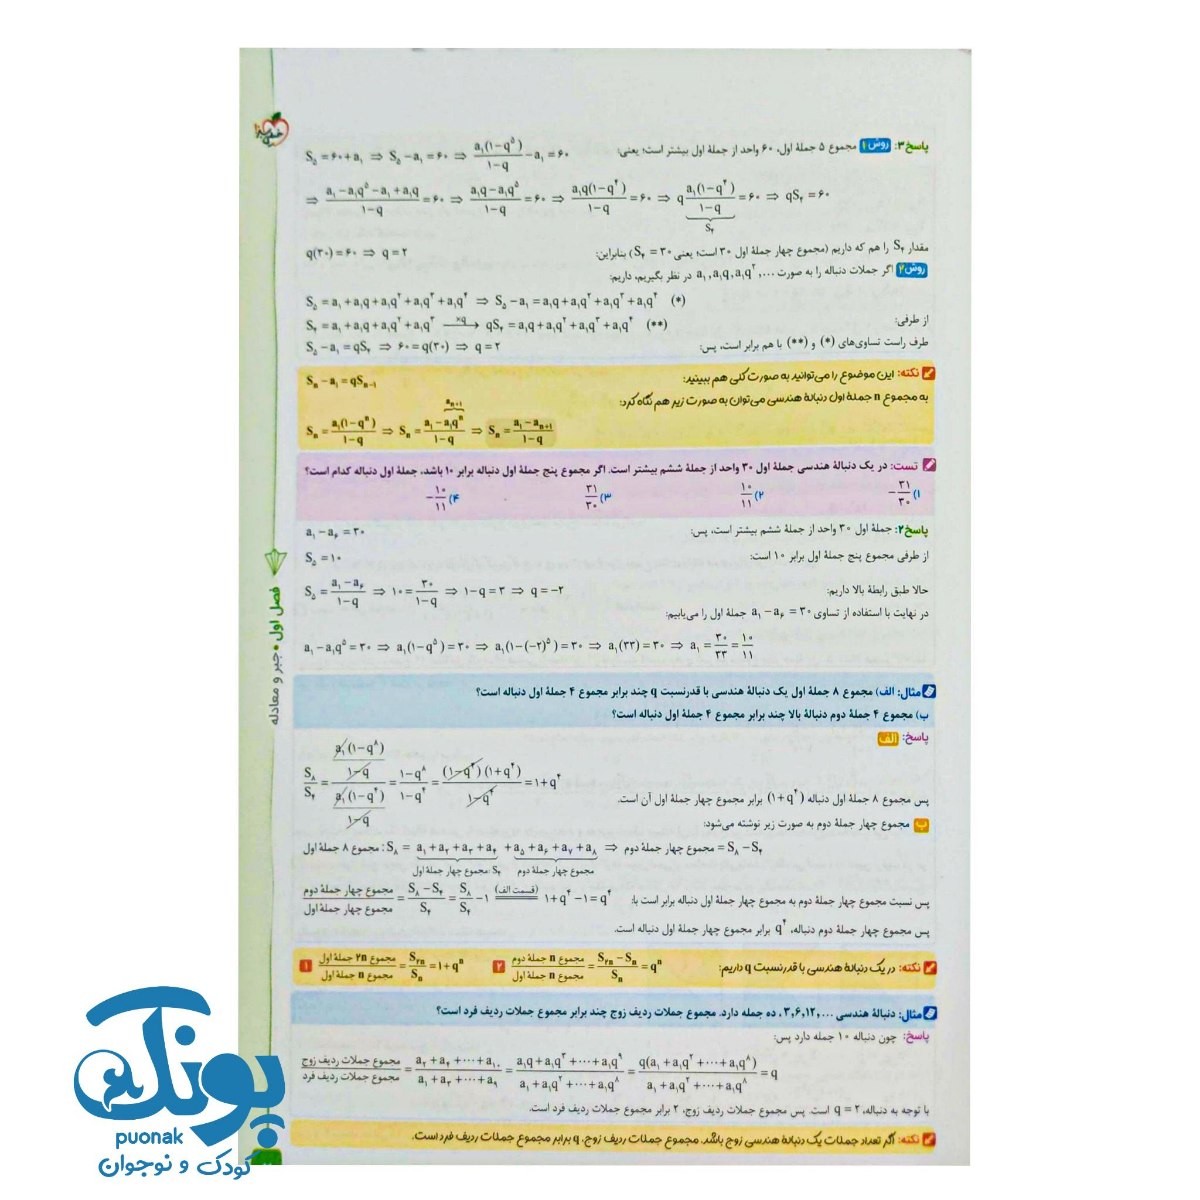 پاسخ ۳: روش ۱ مجموع ۵ جملۀ اول، ۶۰ واحد از جملۀ اول بیشتر است؛ یعنی: S₅ = ۶۰ + a₁ ⇒ S₅ − a₁ = ۶۰ ⇒ a₁(۱−q⁵)/(۱−q) − a₁ = ۶۰
⇒ (a₁ − a₁q⁵ − a₁ + a₁q)/(۱−q) = ۶۰ ⇒ (a₁q − a₁q⁵)/(۱−q) = ۶۰ ⇒ a₁q(۱−q⁴)/(۱−q) = ۶۰ ⇒ q a₁(۱−q⁴)/(۱−q) = ۶۰ ⇒ qS₄ = ۶۰
S₄
مقدار S₄ را هم که داریم (مجموع چهار جملۀ اول ۳۰ است؛ یعنی S₄ = ۳۰) بنابراین: q(۳۰) = ۶۰ ⇒ q = ۲
روش ۲ اگر جملات دنباله را به صورت a₁, a₁q, a₁q², ... در نظر بگیریم، داریم:
S₅ = a₁ + a₁q + a₁q² + a₁q³ + a₁q⁴ ⇒ S₅ − a₁ = a₁q + a₁q² + a₁q³ + a₁q⁴ (*)
از طرفی: S₄ = a₁ + a₁q + a₁q² + a₁q³ —×q→ qS₄ = a₁q + a₁q² + a₁q³ + a₁q⁴ (**)
طرف راست تساوی‌های (*) و (**) با هم برابر است، پس: S₅ − a₁ = qS₄ ⇒ ۶۰ = q(۳۰) ⇒ q = ۲
نکته: این موضوع را می‌توانید به صورت کلی هم ببینید: Sₙ − a₁ = qSₙ₋₁
به مجموع n جملۀ اول دنبالۀ هندسی می‌توان به صورت زیر هم نگاه کرد:
Sₙ = a₁(۱−qⁿ)/(۱−q) ⇒ Sₙ = (a₁ − a₁qⁿ)/(۱−q) ⇒ Sₙ = (a₁ − aₙ₊₁)/(۱−q)
aₙ₊₁
تست: در یک دنبالۀ هندسی جملۀ اول ۳۰ واحد از جملۀ ششم بیشتر است. اگر مجموع پنج جملۀ اول دنباله برابر ۱۰ باشد، جملۀ اول دنباله کدام است؟
۱) −۳۱/۳۰ ۲) ۱۰/۱۱ ۳) ۳۱/۳۰ ۴) −۱۰/۱۱
پاسخ ۲: جملۀ اول ۳۰ واحد از جملۀ ششم بیشتر است، پس: a₁ − a₆ = ۳۰
از طرفی مجموع پنج جملۀ اول برابر ۱۰ است: S₅ = ۱۰
حالا طبق رابطۀ بالا داریم: S₅ = (a₁ − a₆)/(۱−q) ⇒ ۱۰ = ۳۰/(۱−q) ⇒ ۱−q = ۳ ⇒ q = −۲
در نهایت با استفاده از تساوی a₁ − a₆ = ۳۰ جملۀ اول را می‌یابیم:
a₁ − a₁q⁵ = ۳۰ ⇒ a₁(۱−q⁵) = ۳۰ ⇒ a₁(۱−(−۲)⁵) = ۳۰ ⇒ a₁(۳۳) = ۳۰ ⇒ a₁ = ۳۰/۳۳ = ۱۰/۱۱
مثال: الف) مجموع ۸ جملۀ اول یک دنبالۀ هندسی با قدرنسبت q چند برابر مجموع ۴ جملۀ اول دنباله است؟
ب) مجموع ۴ جملۀ دوم دنبالۀ بالا چند برابر مجموع ۴ جملۀ اول دنباله است؟
پاسخ: الف
S₈/S₄ = (a₁(۱−q⁸)/(۱−q))/(a₁(۱−q⁴)/(۱−q)) = (۱−q⁸)/(۱−q⁴) = (۱−q⁴)(۱+q⁴)/(۱−q⁴) = ۱+q⁴
پس مجموع ۸ جملۀ اول دنباله (۱+q⁴) برابر مجموع چهار جملۀ اول آن است.
ب مجموع چهار جملۀ دوم به صورت زیر نوشته می‌شود:
مجموع ۸ جملۀ اول : S₈ = a₁+a₂+a₃+a₄ + a₅+a₆+a₇+a₈ ⇒ مجموع چهار جملۀ دوم = S₈ − S₄
S₄: مجموع چهار جملۀ اول مجموع چهار جملۀ دوم
پس نسبت مجموع چهار جملۀ دوم به مجموع چهار جملۀ اول دنباله برابر است با: مجموع چهار جملۀ دوم/مجموع چهار جملۀ اول = (S₈ − S₄)/S₄ = S₈/S₄ − ۱ =(قسمت الف)= ۱+q⁴−۱ = q⁴
پس مجموع چهار جملۀ دوم دنباله، q⁴ برابر مجموع چهار جملۀ اول دنباله است.
نکته: در یک دنبالۀ هندسی با قدرنسبت q داریم: ۱ مجموع ۲n جملۀ اول/مجموع n جملۀ اول = S₂ₙ/Sₙ = ۱+qⁿ ۲ مجموع n جملۀ دوم/مجموع n جملۀ اول = (S₂ₙ − Sₙ)/Sₙ = qⁿ
مثال: دنبالۀ هندسی ۳, ۶, ۱۲, ... ، ده جمله دارد. مجموع جملات ردیف زوج چند برابر مجموع جملات ردیف فرد است؟
پاسخ: چون دنباله ۱۰ جمله دارد پس:
مجموع جملات ردیف زوج/مجموع جملات ردیف فرد = (a₂+a₄+⋯+a₁₀)/(a₁+a₃+⋯+a₉) = (a₁q+a₁q³+⋯+a₁q⁹)/(a₁+a₁q²+⋯+a₁q⁸) = q(a₁+a₁q²+⋯+a₁q⁸)/(a₁+a₁q²+⋯+a₁q⁸) = q
با توجه به دنباله، q = ۲ است. پس مجموع جملات ردیف زوج، ۲ برابر مجموع جملات ردیف فرد است.
نکته: اگر تعداد جملات یک دنبالۀ هندسی زوج باشد، مجموع جملات ردیف زوج، q برابر مجموع جملات ردیف فرد است.
فصل اول • جبر و معادله
پونک
puonak
کودک و نوجوان